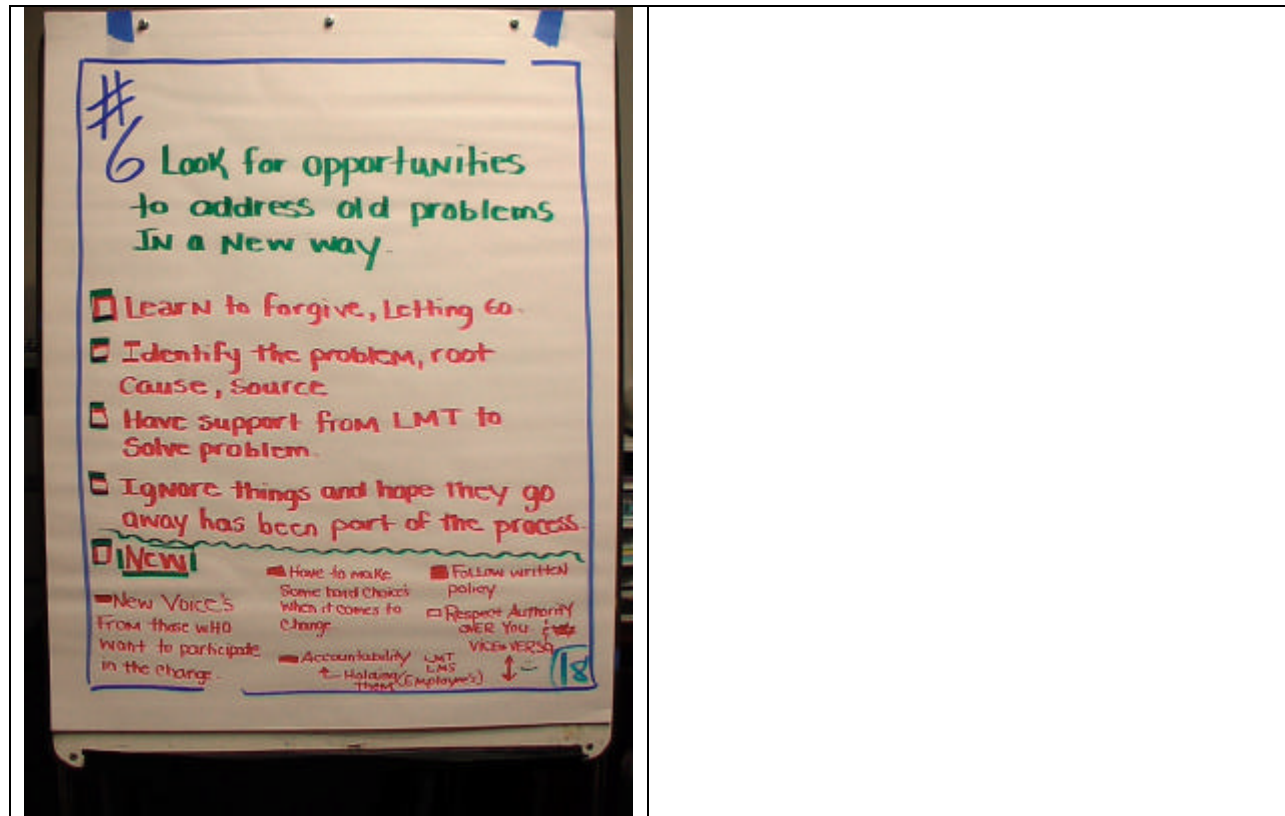 #6
Look for opportunities
to address old problems
IN a New way.
Learn to forgive, Letting Go.
Identify the problem, root
Cause, Source
Have support from LMT to
Solve problem.
Ignore things and hope they go
away has been part of the process.
New
New Voice's
From those who
want to participate
in the change.
Have to make
Some hard choices
when it comes to
change
Accountability
Holding
them (Employee's)
LMT
LMS
Follow written
policy
Respect Authority
OVER You
VICE VERSA
18